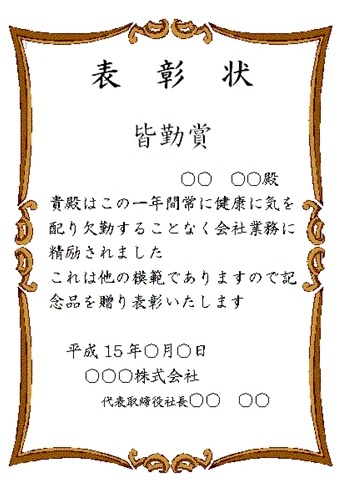 表 彰 状
皆勤賞
○○　○○殿
貴殿はこの一年間常に健康に気を
配り欠勤することなく会社業務に
精励されました
これは他の模範でありますので記
念品を贈り表彰いたします
平成 15 年○月○日
○○○株式会社
代表取締役社長○○　○○